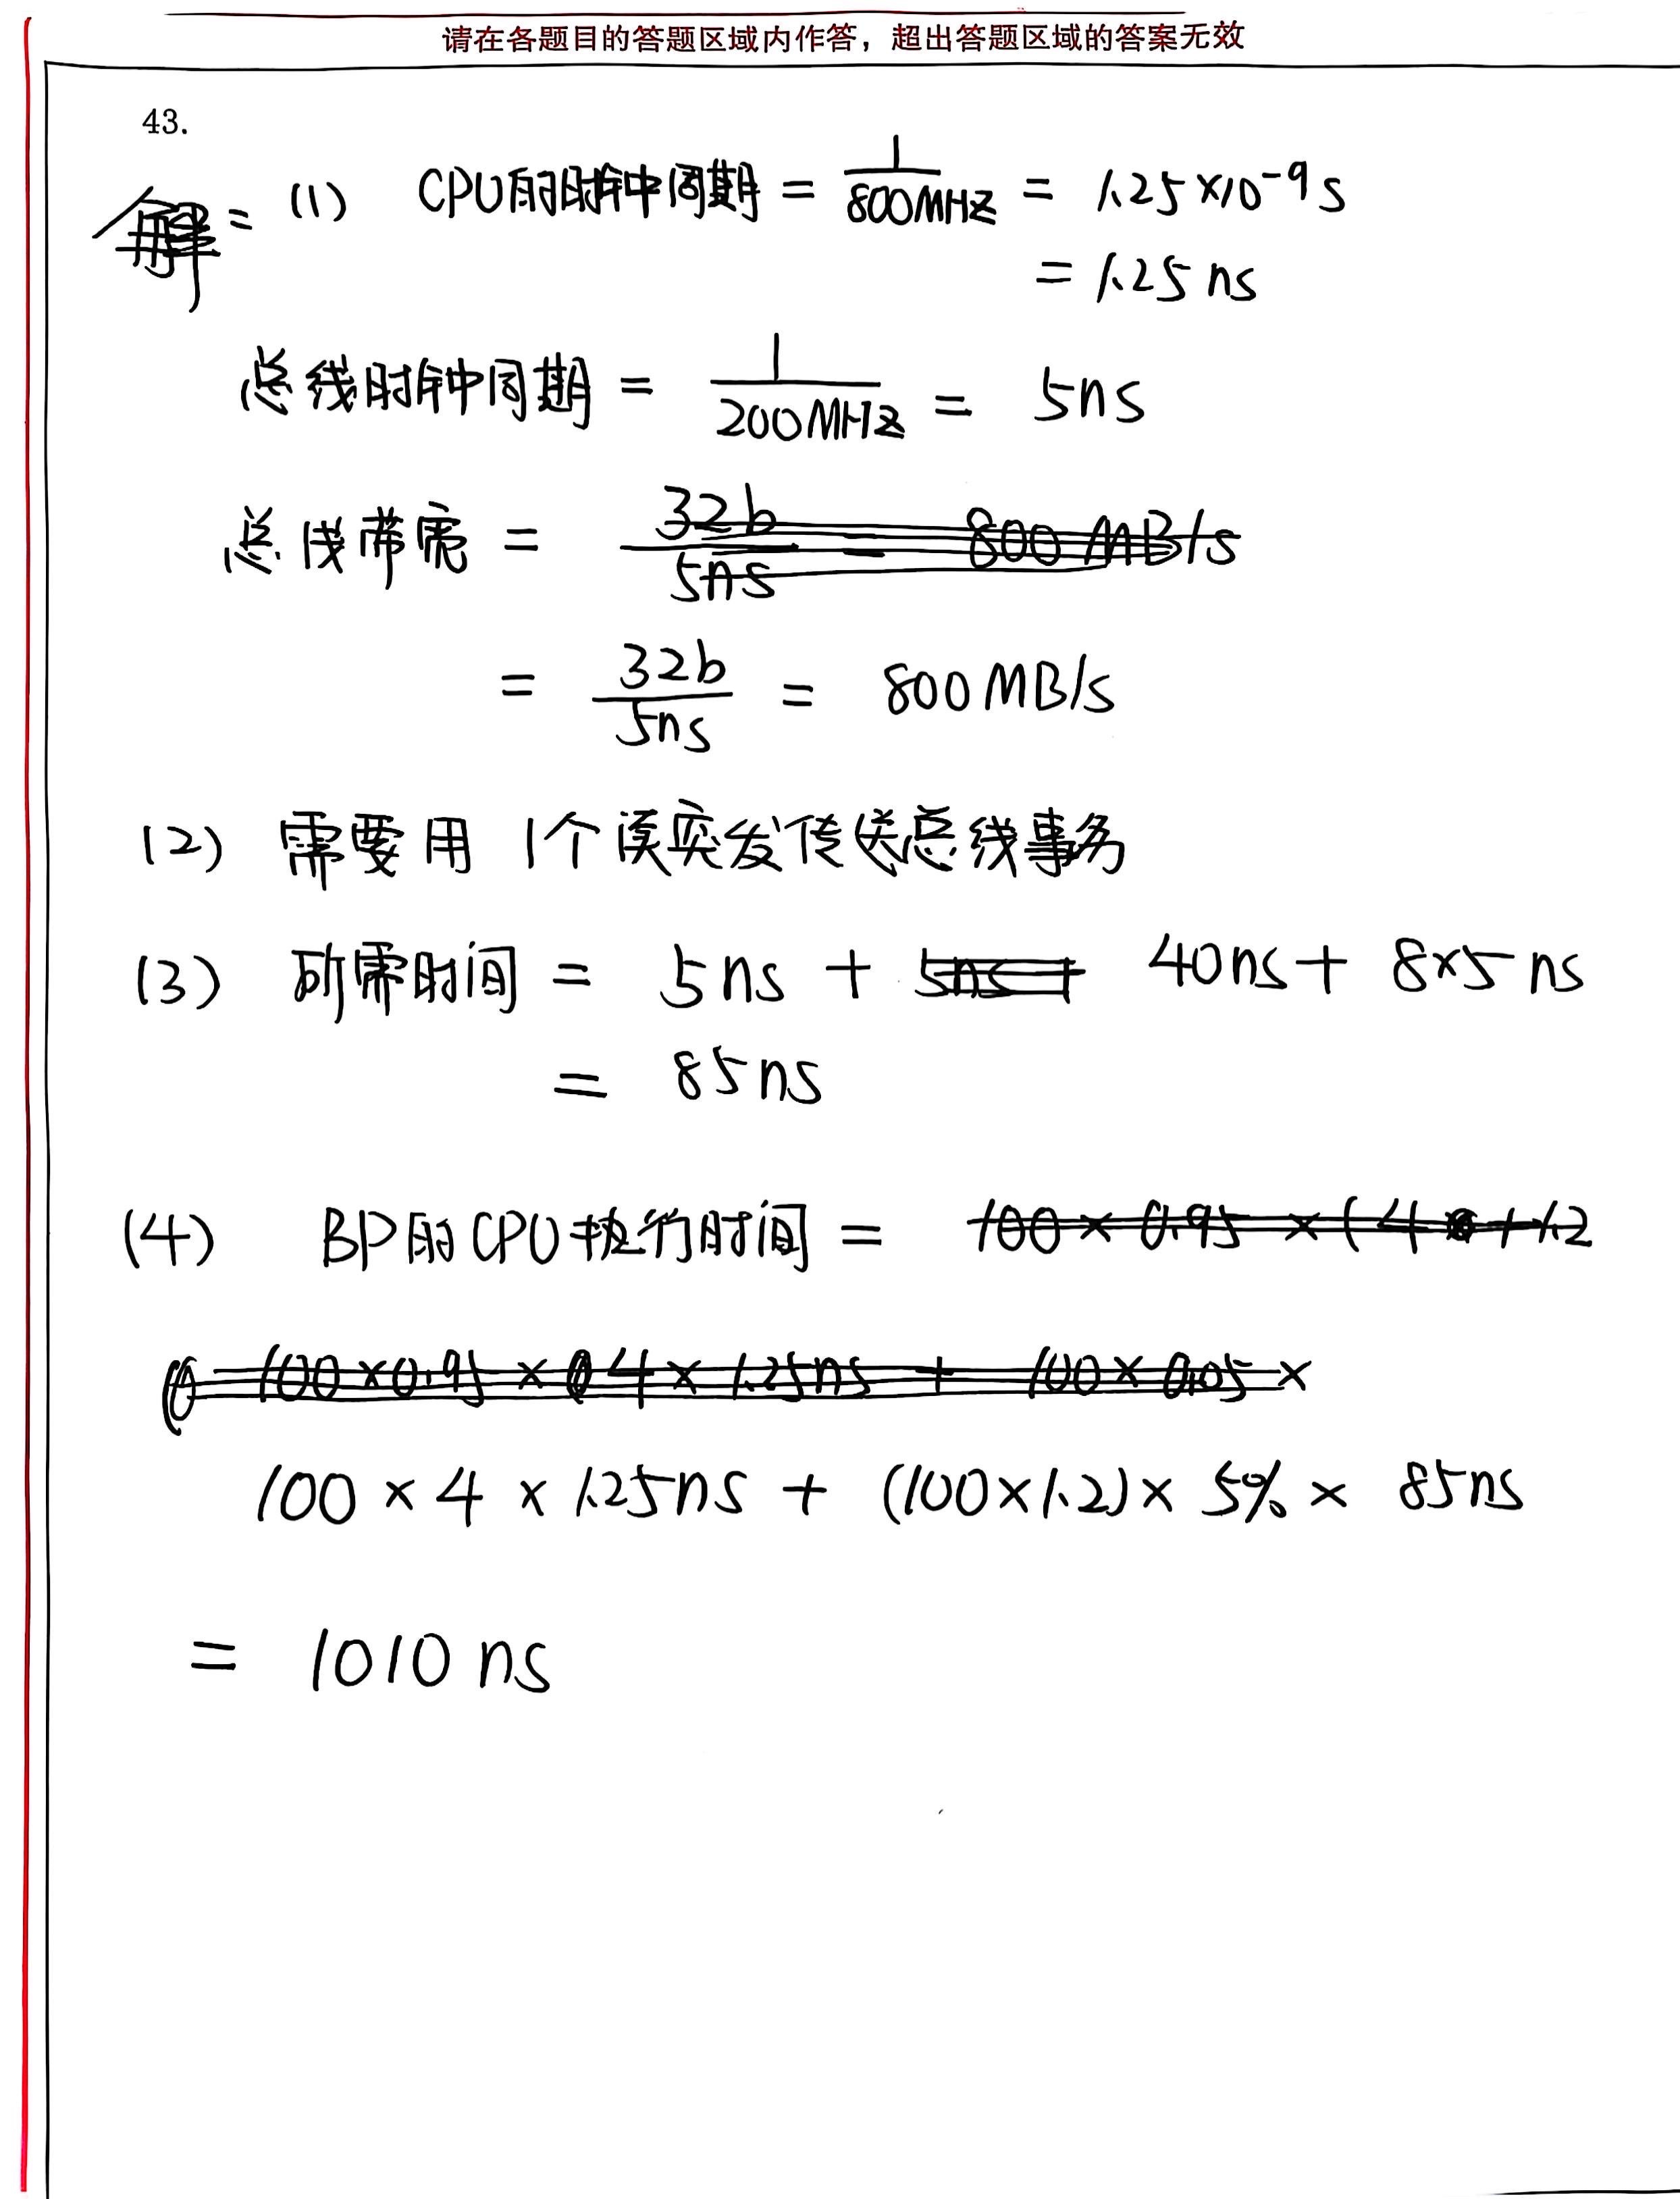 请在各题目的答题区域内作答，超出答题区域的答案无效
43.
解: (1) CPU的时钟周期 = 1/800MHz = 1.25×10⁻⁹s
= 1.25ns
总线时钟周期 = 1/200MHz = 5ns
总线带宽 = 32b/5ns = 800MB/s
= 32b/5ns = 800MB/s
(2) 需要用1个读突发传送总线事务
(3) 所需时间 = 5ns + 5ns + 40ns + 8×5ns
= 85ns
(4) BP的CPU执行时间 = 100 × 0.95 × ( 4 + 1.2
100×0.95 × 4 × 1.25ns + 100 × 0.05 ×
100 × 4 × 1.25ns + (100×1.2) × 5% × 85ns
= 1010ns